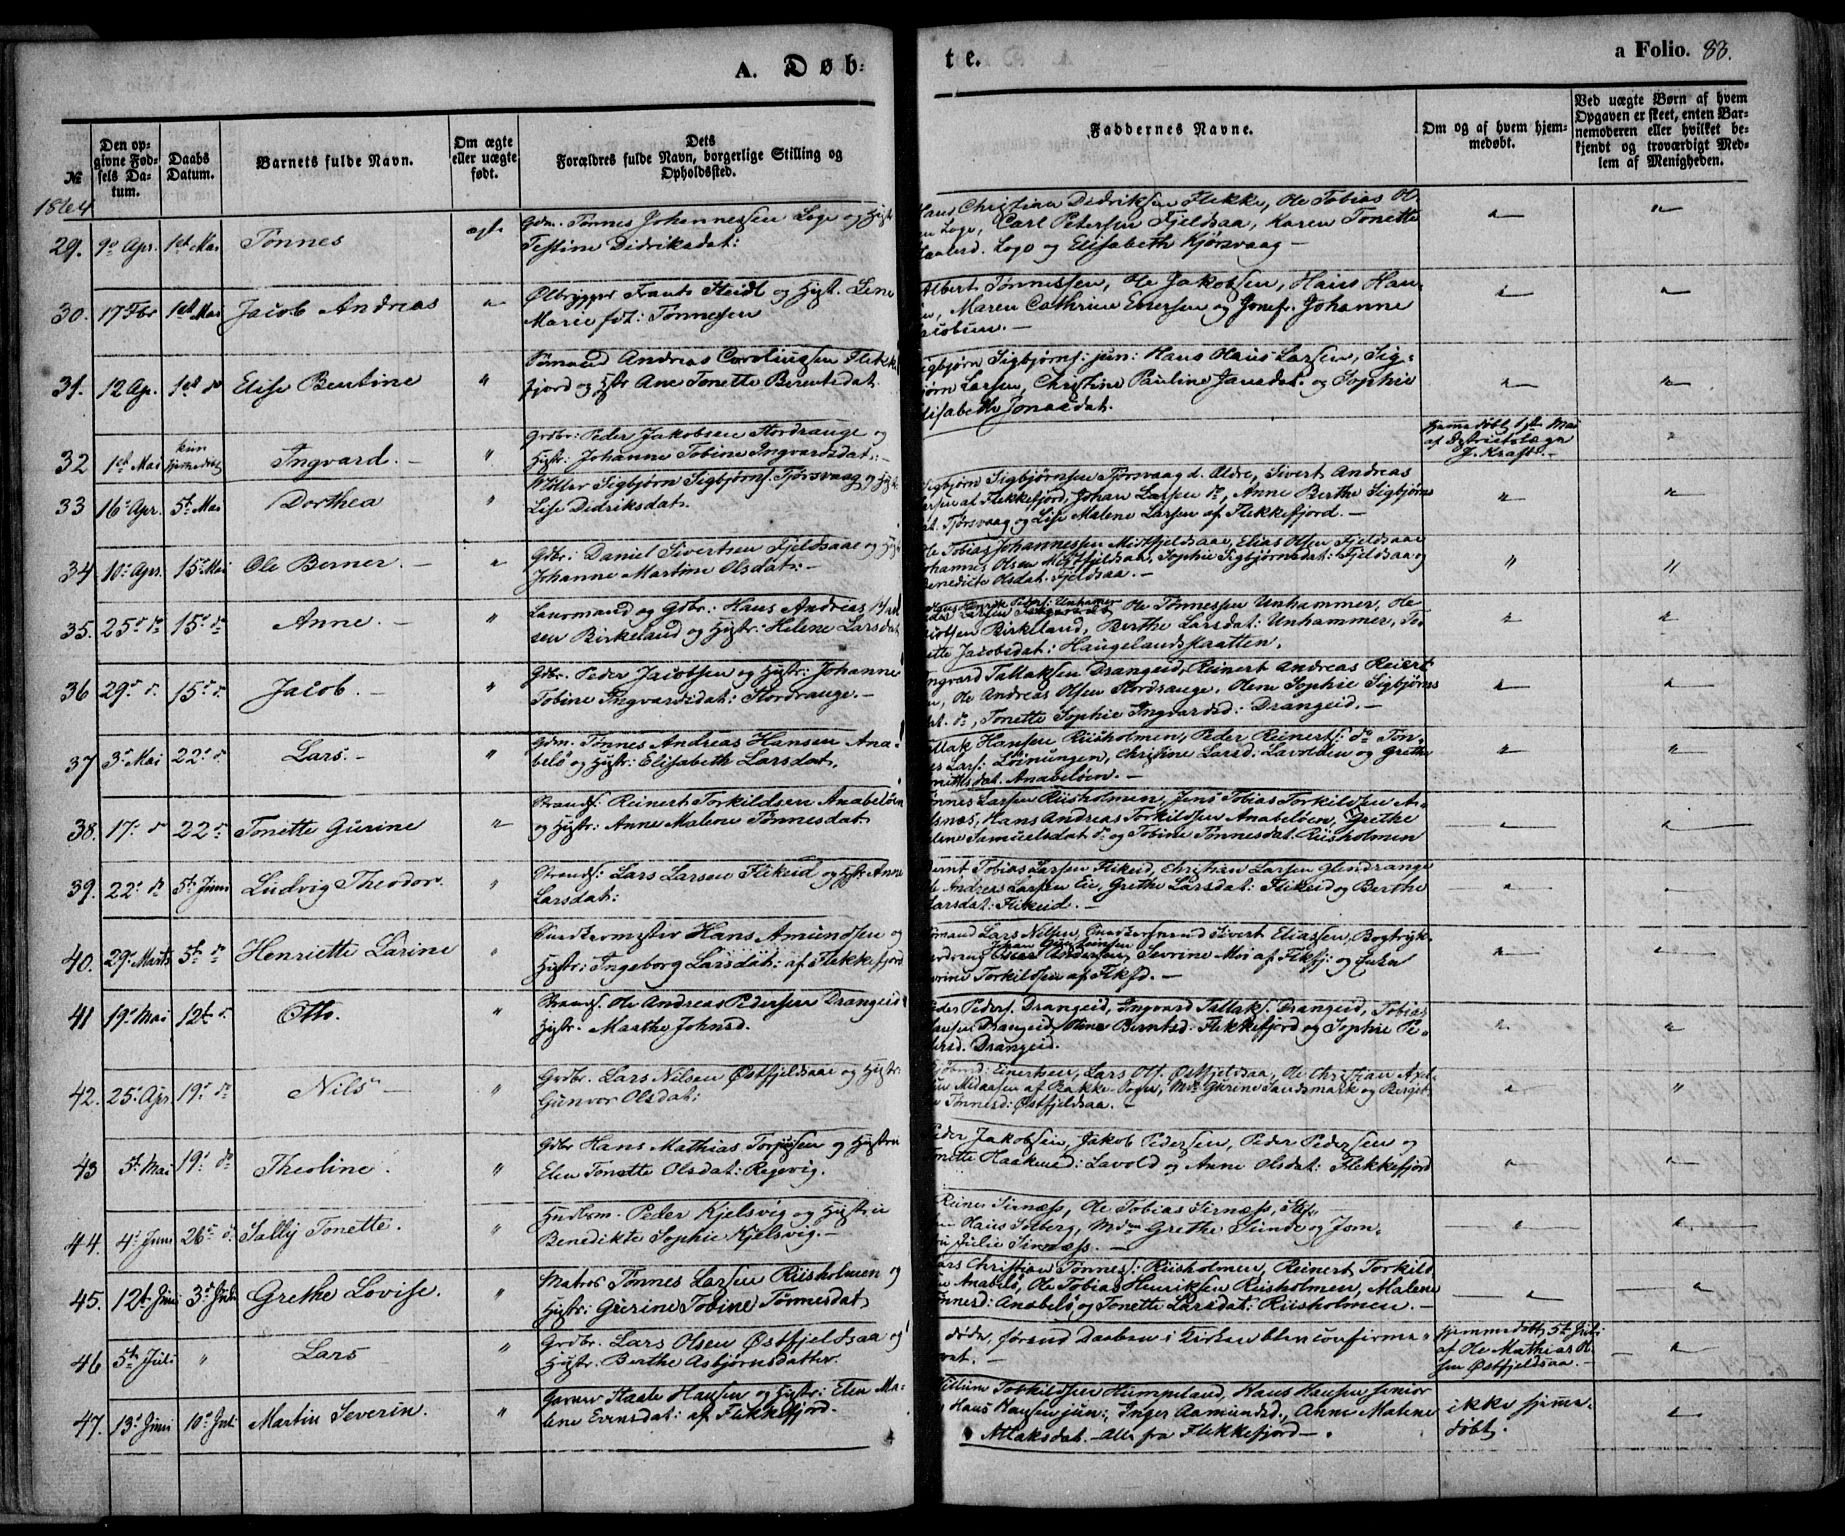 A. Døb-
te.
a Folio. 83.
№
Den op-
givne Fød-
sels Da-
tum.
Daabs
Datum.
Barnets fulde Navn.
Om ægte
eller uægte
født.
Dets
Forældres fulde Navn, borgerlige Stilling og
Opholdssted.
Faddernes Navne.
Om og af hvem hjem-
medøbt.
Ved uægte Børn af hvem
Opgaven er skeet, enten Bar-
nemoderen eller hvilket be-
kjendt og troværdigt Med-
lem af Menigheden.
1864
29. 9de Apr. 1st Mai Tønnes ægte Gdm. Tønnes Johannessen Loge og Hustr
Testine Didriksdat:
Hans Christian Didriksen Flekke, Ole Tobias Ol-
sen Loge, Carl Petersen Fjeldsaa, Karen Tonette
Loge og Elisabeth Kjørsvaag —
30. 17 Fbr 1st Mai Jacob Andreas " Ølbrygger Frants Steidl og Hust. Lene
Marie fdt: Tønnesen
Albert Tønnessen, Ole Jakobsen, Hans Han-
sen, Maren Cathrine Evensen og Jomfr. Johanne
Jacobsen. —
31. 12 Ap. 1st do Elise Bentine " Sømand Andreas Carolinssen Flekke-
fjord og Hstr Ane Tonette Berntsdat.
Sigbjørn Sigbjørns: jun: Hans Hans Larsen, Sig-
bjørn Larsen, Christine Pauline Jansdat. og Sophie
Elisabeth Jonasdat.
32 1st Mai kun hjemmedøbt Ingvard. — " Grdbr: Peder Jakobsen Stordrange og
Hustr: Johanne Tobine Ingvardsdat: —
Hjemmedøbt 1ste Mai
af Districtslæge
J. Kraft. —
33 16 Apr. 5t Mai Dorthea " Møller Sigbjørn Sigbjørns. Tjørsvaag og Hustr
Lise Didriksdat.
Sigbjørn Sigbjørnsen Tjørsvaag d. Ældre, Sivert Andreas
Larsen af Flekkefjord, Johan Larsen do, Anne Berthe Sigbjørns
dat. Tjørsvaag og Lise Malene Larsen af Flekkefjord. —
34 10 Apr. 15 Mai Ole Berner. — " Gdbr: Daniel Sivertsen Fjeldsaae og Hustr
Johanne Martine Olsdat: —
Ole Tobias Johannessen Midtfjeldsaae, Elias Olsen Fjeldsaae
Johannes Olsen Midtfjeldsaa, Sophie Sigbjørnsdat: Fjeldsaa og
Benedicte Olsdat. Fjeldsaa. —
35. 25 do 15 do Anne. — " Lensmand og Gdbr: Hans Andreas
sen Birkeland og Hustr: Helene Larsdat
Hans Henrik Peders: Unhammer
Ole Tønnessen Unhammer, Ole
Jacobsen Birkeland, Berthe Larsdat: Unhammer, To-
nette Jacobsdat: Haugelandskaatten.
36 29 do. 15 do. Jacob. — " Gdbr. Peder Jacobsen og Hustr: Johanne
Tobine Ingvardsdat: Stordrange. —
Ingvard Tallaksen Drangeid, Reinert Andreas Reiert-
sen, Ole Andreas Olsen Stordrange, Olene Sophie Sigbjørns
dat. do, Tonette Sophie Ingvardsd: Drangeid. —
37 3 Mai 22 do. Lars. — " Gdm. Tønnes Andreas Hansen Ana-
belø og Hustr: Elisabeth Larsdat.
Tallak Hansen Riisholmen, Peder Reinerts: do Tøn-
nes Lars: Løiningen, Christine Larsd. Lavolden og Grethe
Anabeløen. —
38. 17 do 22 do Tonette Gurine " Strands: Reinert Torkildsen Anabeløen
og Hustr: Anne Malene Tønnesdat
Tønnes Larsen Riisholmen, Jens Tobias Torkildsen A-
Hans Andreas Torkildsen Anabeløen, Grethe
Samuelsdat do og Tobine Tønnesdat. Riisholmen
39. 22 do 5t Juni Ludvig Theodor. " Strands: Lars Larsen Flikeid og Hstr Anne
Larsdat:
Bernt Tobias Larsen Flikeid, Christian Larsen Glendrange
Ole Andreas Larsen Eie, Grethe Larsdat: Flikeid og Berthe
Larsdat: Flikeid. —
40. 29 Marts 5t do Henriette Larine " Snedkermester Hans Amundsen og
Hustr: Ingeborg Larsdat: af Flekkefjord
Sømand Lars Nilsen, Sivert Eliassen, Bogtryk-
Severine Moi af Flkfj: og
Torkildsen af Flkfd. —
41 19 Mai 12t do. Otto. " Strands. Ole Andreas Pedersen Drangeid
Hustr. Marthe Johnsd.
Peder Peders. Drangeid, Ingvard Tallaks. Drangeid, Tobias
Hansen Drangeid, Oline Berntsd. Flekkefjord og Sophie Pe-
dersd. Drangeid.
42. 25 Apr 19 do Nils — " Grdbr. Lars Nilsen Østfjeldsaae og Hustr:
Gunvor Olsdat:
Einersen, Lars Ols. Østfjeldsaa, Ole Christian Axel-
sen Midaasen af Bakke Sogn, Gurine Sandsmark og Berget-
te Tønnesd: Østfjeldsaa. —
43 5t Mai 19 do Theoline. " Gdbr Hans Mathias Torjussen og Hustru
Elen Tonette Olsdat: Regevig.
Peder Jakobsen, Jakob Pedersen, Peder Pedersen og
Tonette Haakensd: Lavold og Anne Olsdat: Flekkefjord
44. 4 Juni 26 do. Sally Tonette. " Hndlsm. Peder Kjelsvig og Hustru
Benedikte Sophie Kjelsvig. —
Reiner Sirnæss, Ole Tobias Sirnæss,
Hans Solberg, Mdm Grethe Stinde og Jom-
fru Julie Sirnæss. —
45. 12t Juni 3 Juli Grethe Lovise. " Matros Tønnes Larsen Riisholmen og
Hustr: Gurine Tobine Tønnesdat
Lars Christian Tønnes: Riisholmen, Reinert Torkild-
sen Anabelø, Ole Tobias Henriksen Riisholmen, Malene
Tønnesd: Anabelø og Tonette Larsdat: Riisholmen. —
46 5t Juli " Lars " Grdbr. Lars Olsen Østfjeldsaa og
Hustr. Berthe Asbjørnsdatter.
døde, førend Daaben i Kirken blev confirme-
ret. —
Hjemmedøbt 5t Juli
af Ole Mathias Ol-
sen Østfjeldsaa. —
47. 13 Juni 10 Juli Martin Severin. " Garver Staale Hansen og Hustr: Elen Ma-
lene Evensdat: af Flekkefjord.
Villum Torkildsen Humpeland, Hans Hansen senior
og Hans Hansen jun:, Inger Aamundsd., Anne Malene
Atlaksdat. — Alle fra Flekkefjord —.
ikke hjemme-
døbt.